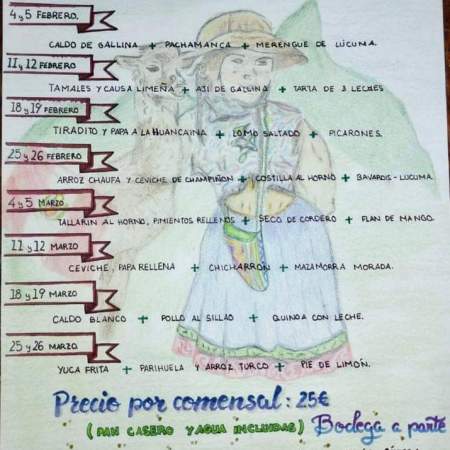 4 y 5 FEBRERO.
CALDO DE GALLINA + PACHAMANCA + MERENGUE DE LUCUMA.
11 y 12 FEBRERO
TAMALES Y CAUSA LIMEÑA + AJI DE GALLINA + TARTA DE 3 LECHES
18 y 19 FEBRERO
TIRADITO Y PAPA A LA HUANCAINA + LOMO SALTADO + PICARONES.
25 y 26 FEBRERO
ARROZ CHAUFA Y CEVICHE DE CHAMPIÑON + COSTILLA AL HORNO + BAVAROIS - LUCUMA.
4 y 5 MARZO.
TALLARIN AL HORNO, PIMIENTOS RELLENOS + SECO DE CORDERO + FLAN DE MANGO.
11 y 12 MARZO
CEVICHE, PAPA RELLENA + CHICHARRON + MAZAMORRA MORADA.
18 y 19 MARZO
CALDO BLANCO + POLLO AL SILLAO + QUINOA CON LECHE.
25 y 26 MARZO.
YUCA FRITA + PARIHUELA Y ARROZ TURCO + PIE DE LIMÓN.
Precio por comensal: 25€
(PAN CASERO Y AGUA INCLUIDAS) Bodega a parte